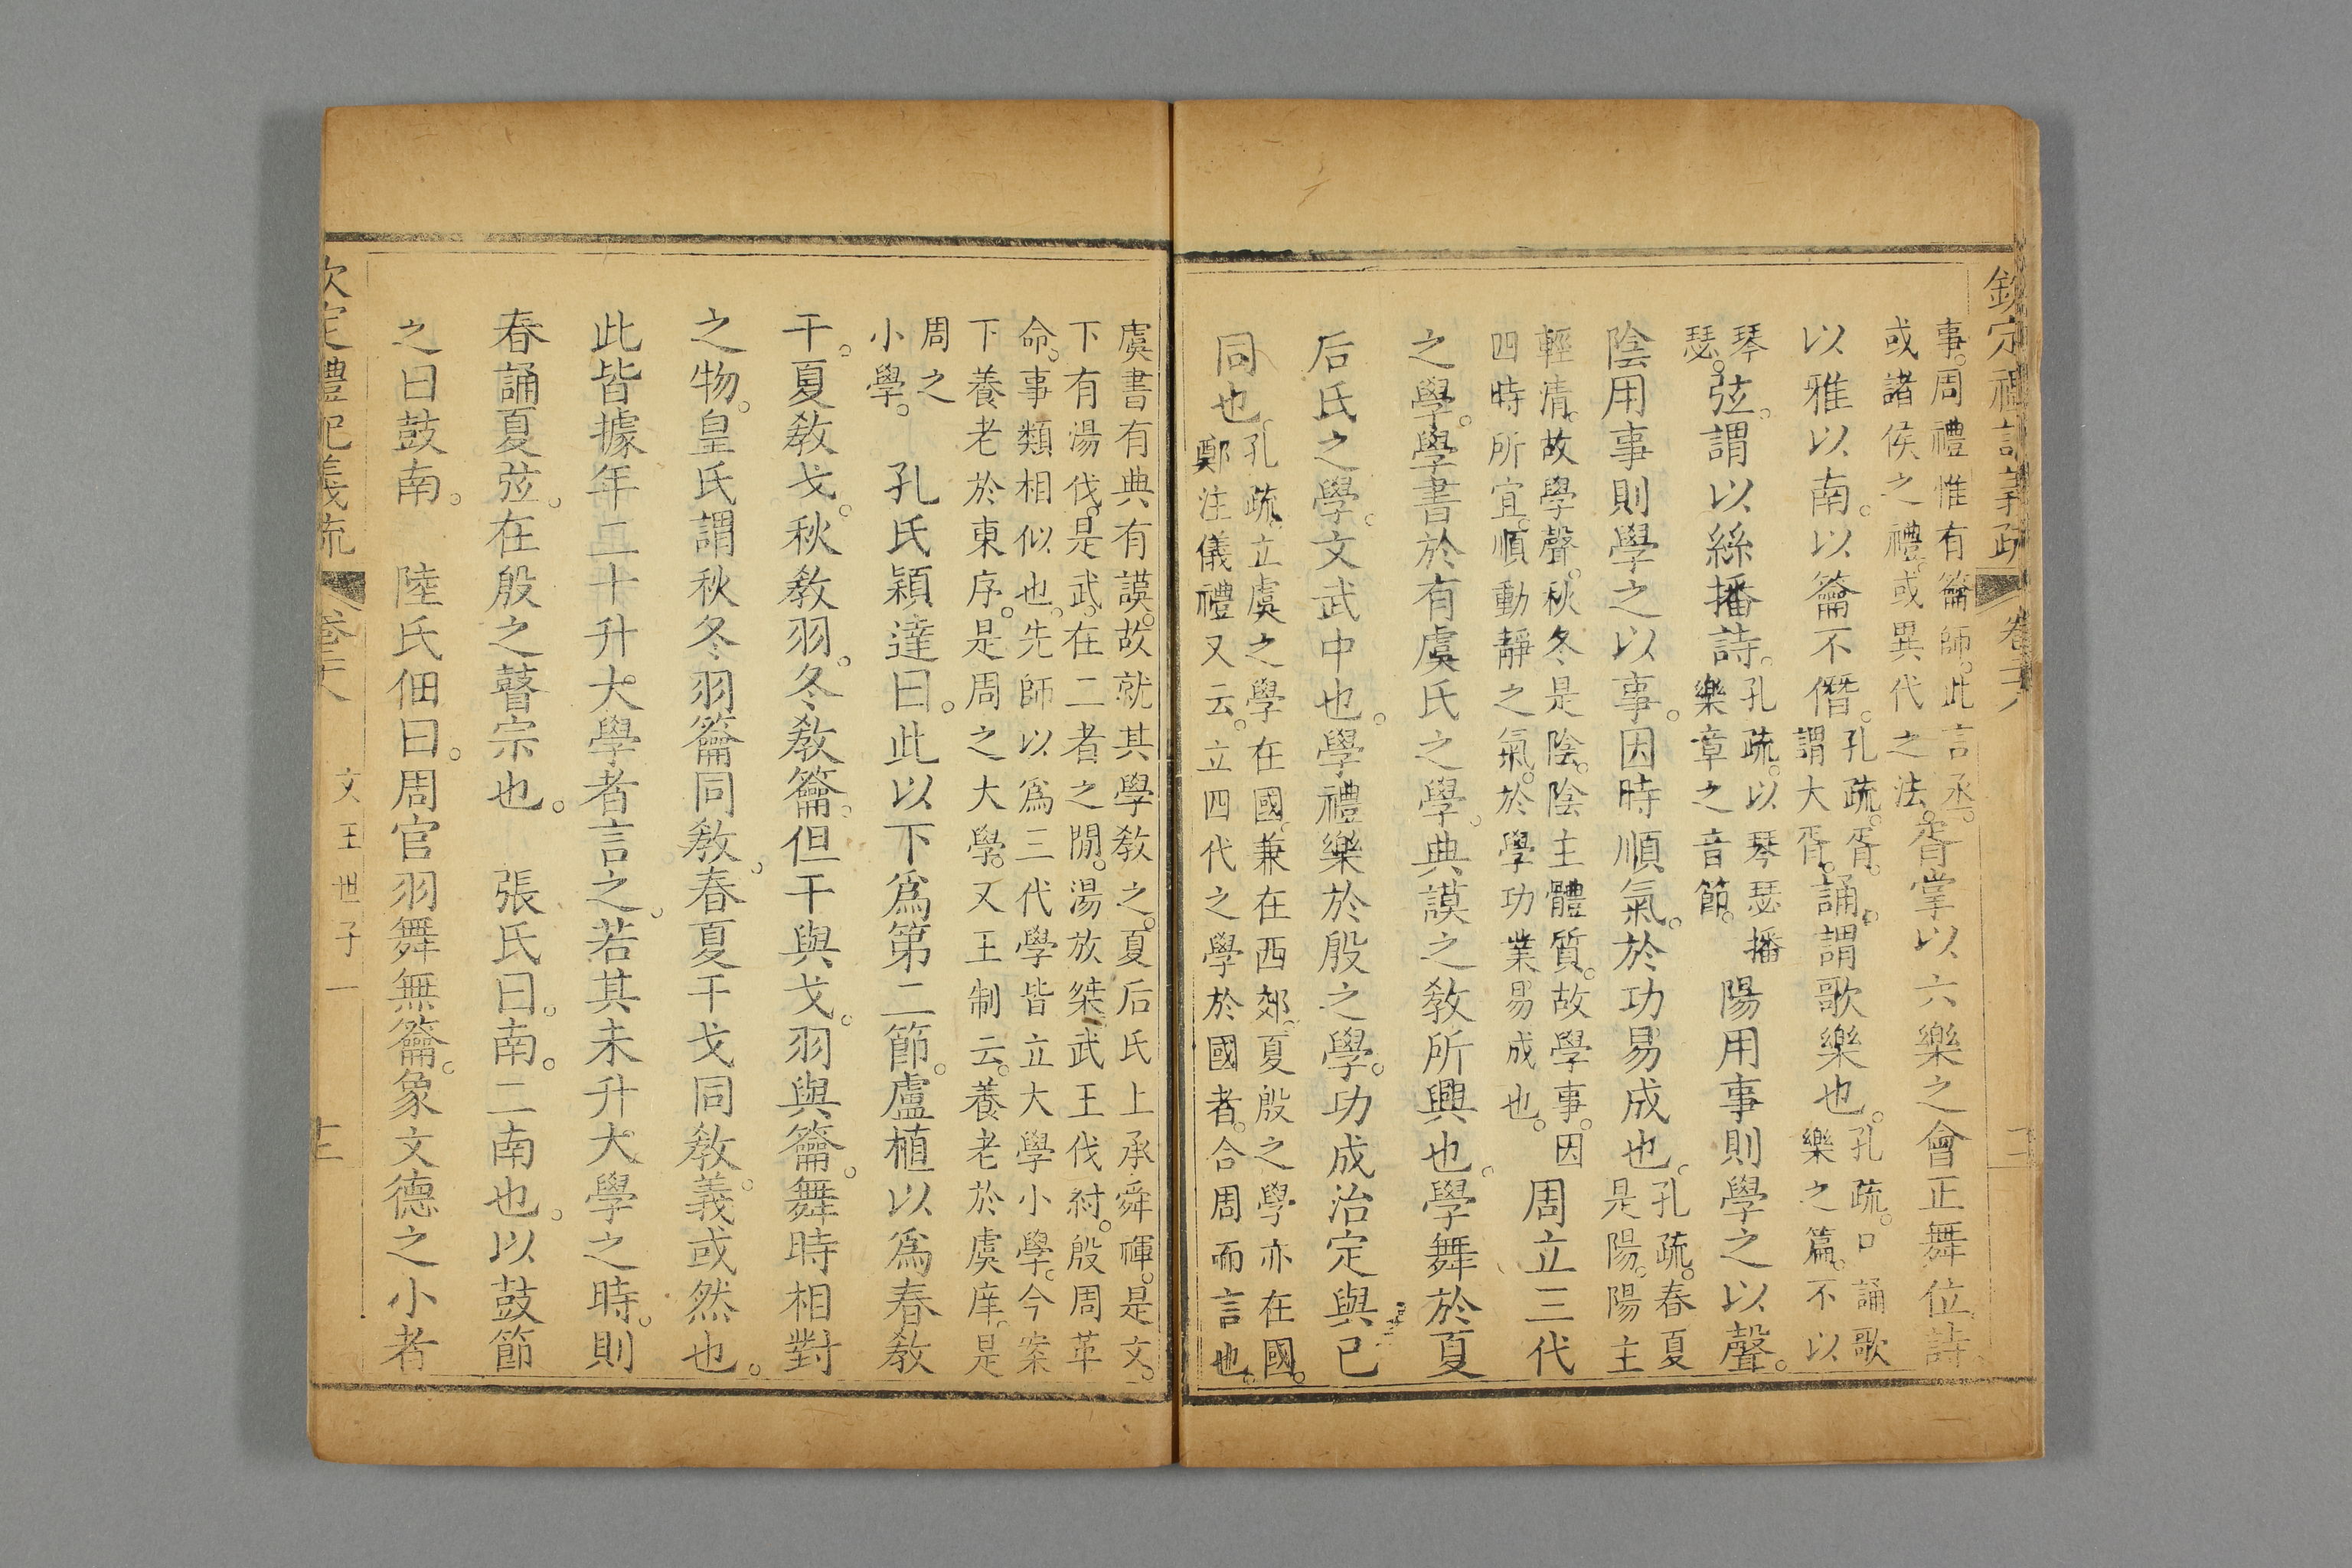 欽定禮記義疏 卷二十八
事。周禮惟有籥師。此言丞。
或諸侯之禮。或異代之法。
胥掌以六樂之會正舞位。詩
以雅以南。以籥不僭。
孔疏。胥。
謂大胥。
誦。謂歌樂也。
孔疏。口誦歌
樂之篇。不以
琴
瑟。
弦。謂以絲播詩。
孔疏。以琴瑟播
樂章之音節。
陽用事則學之以聲。
陰用事則學之以事。因時順氣。於功易成也。
孔疏。春夏
是陽。陽主
輕清。故學聲。秋冬是陰。陰主體質。故學事。因
四時所宜。順動靜之氣。於學功業易成也。
周立三代
之學。學書於有虞氏之學。典謨之教所興也。學舞於夏
后氏之學。文武中也。學禮樂於殷之學。功成治定與已
同也。
孔疏。立虞之學在國。兼在西郊。夏殷之學亦在國。
鄭注儀禮又云。立四代之學於國者。合周而言也。
虞書有典有謨。故就其學教之。夏后氏上承舜禪。是文。
下有湯伐。是武。在二者之閒。湯放桀。武王伐紂。殷周革
命。事類相似也。先師以爲三代學皆立大學小學。今案
下養老於東序。是周之大學。又王制云。養老於虞庠。是
周之
小學。
孔氏穎達曰。此以下爲第二節。盧植以爲春教
干。夏教戈。秋教羽。冬教籥。但干與戈。羽與籥。舞時相對
之物。皇氏謂秋冬羽籥同教。春夏干戈同教。義或然也。
此皆據年二十升大學者言之。若其未升大學之時。則
春誦夏弦。在殷之瞽宗也。 張氏曰。南。二南也。以鼓節
之曰鼓南。 陸氏佃曰。周官羽舞無籥。象文德之小者
欽定禮記義疏 卷二十八 文王世子一